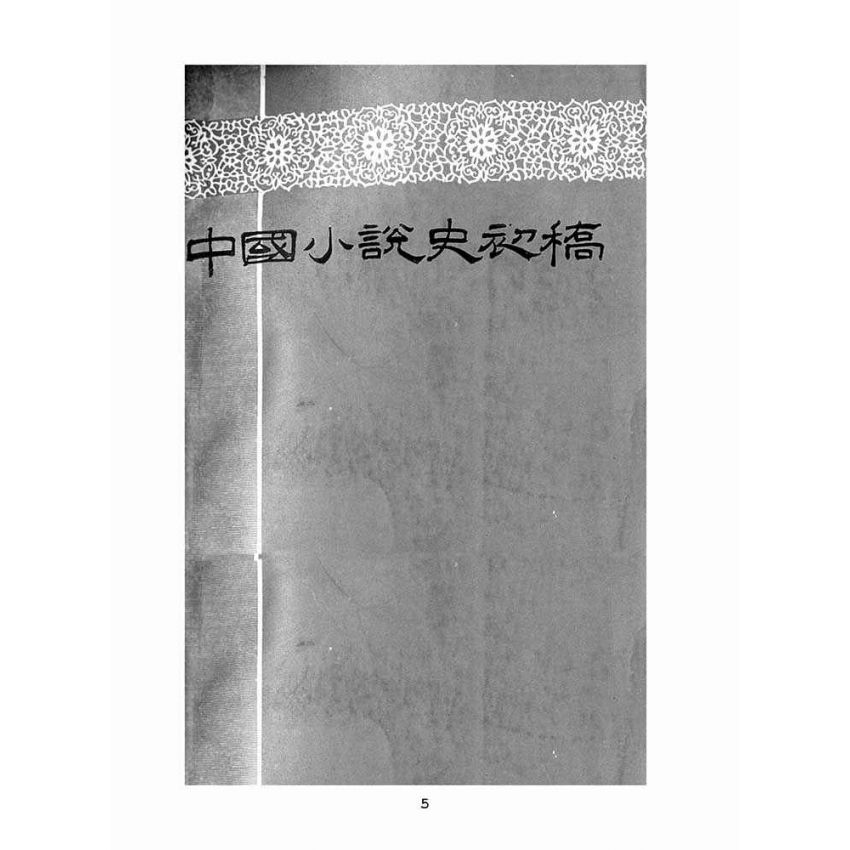 中國小說史初稿
5